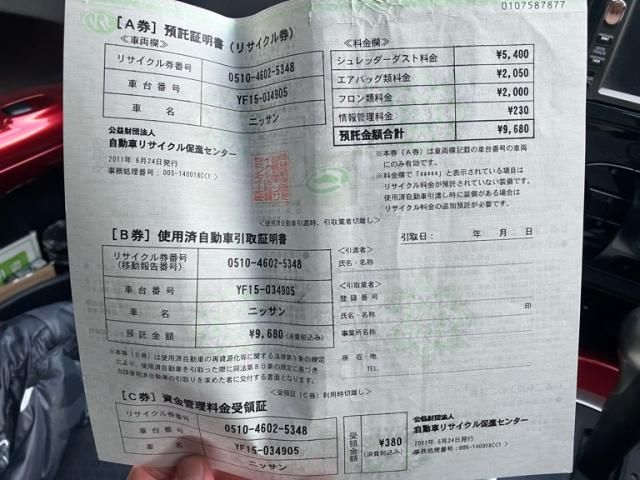 0107587877
[A券] 預託証明書(リサイクル券)
≪車両欄≫
リサイクル券番号 0510-4602-5348
車台番号 YF15-034905
車名 ニッサン
公益財団法人
自動車リサイクル促進センター
2011年 6月24日発行
事務処理番号:005-140018C(1)
≪料金欄≫
シュレッダーダスト料金 ¥5,400
エアバッグ類料金 ¥2,050
フロン類料金 ¥2,000
情報管理料金 ¥230
預託金額合計 ¥9,680
※本券(A券)は車両欄記載の車台番号の車両
にのみ有効です。
※料金欄で「*****」と表示されている項目は
リサイクル料金が預託されていない装備です。
使用済自動車引渡し時に装備がある場合は
リサイクル料金の追加預託が必要です。
<使用済自動車引渡時、引取業者切離し>
[B券] 使用済自動車引取証明書
リサイクル券番号
(移動報告番号) 0510-4602-5348
車台番号 YF15-034905
車名 ニッサン
預託金額 ¥9,680(消費税込み)
※本券(B券)は使用済自動車の再資源化等に関する法律第9条の規定
により、使用済自動車を引取った際に同法第80条の規定に基づき
当該使用済自動車の引取りを求めた者に交付する書面となります。
引取日: 年 月 日
<引渡者>
氏名・名称
<引取業者>
登録番号
氏名・名称 印
事業所名
所在地
TEL.
<受領証(C券)利用時切離し>
[C券] 資金管理料金受領証
リサイクル券番号 0510-4602-5348
車台番号 YF15-034905
車名 ニッサン
受領金額 ¥380
(消費税込み)
公益財団法人
自動車リサイクル促進センター
2011年 6月24日発行
事務処理番号:005-140018C(1)